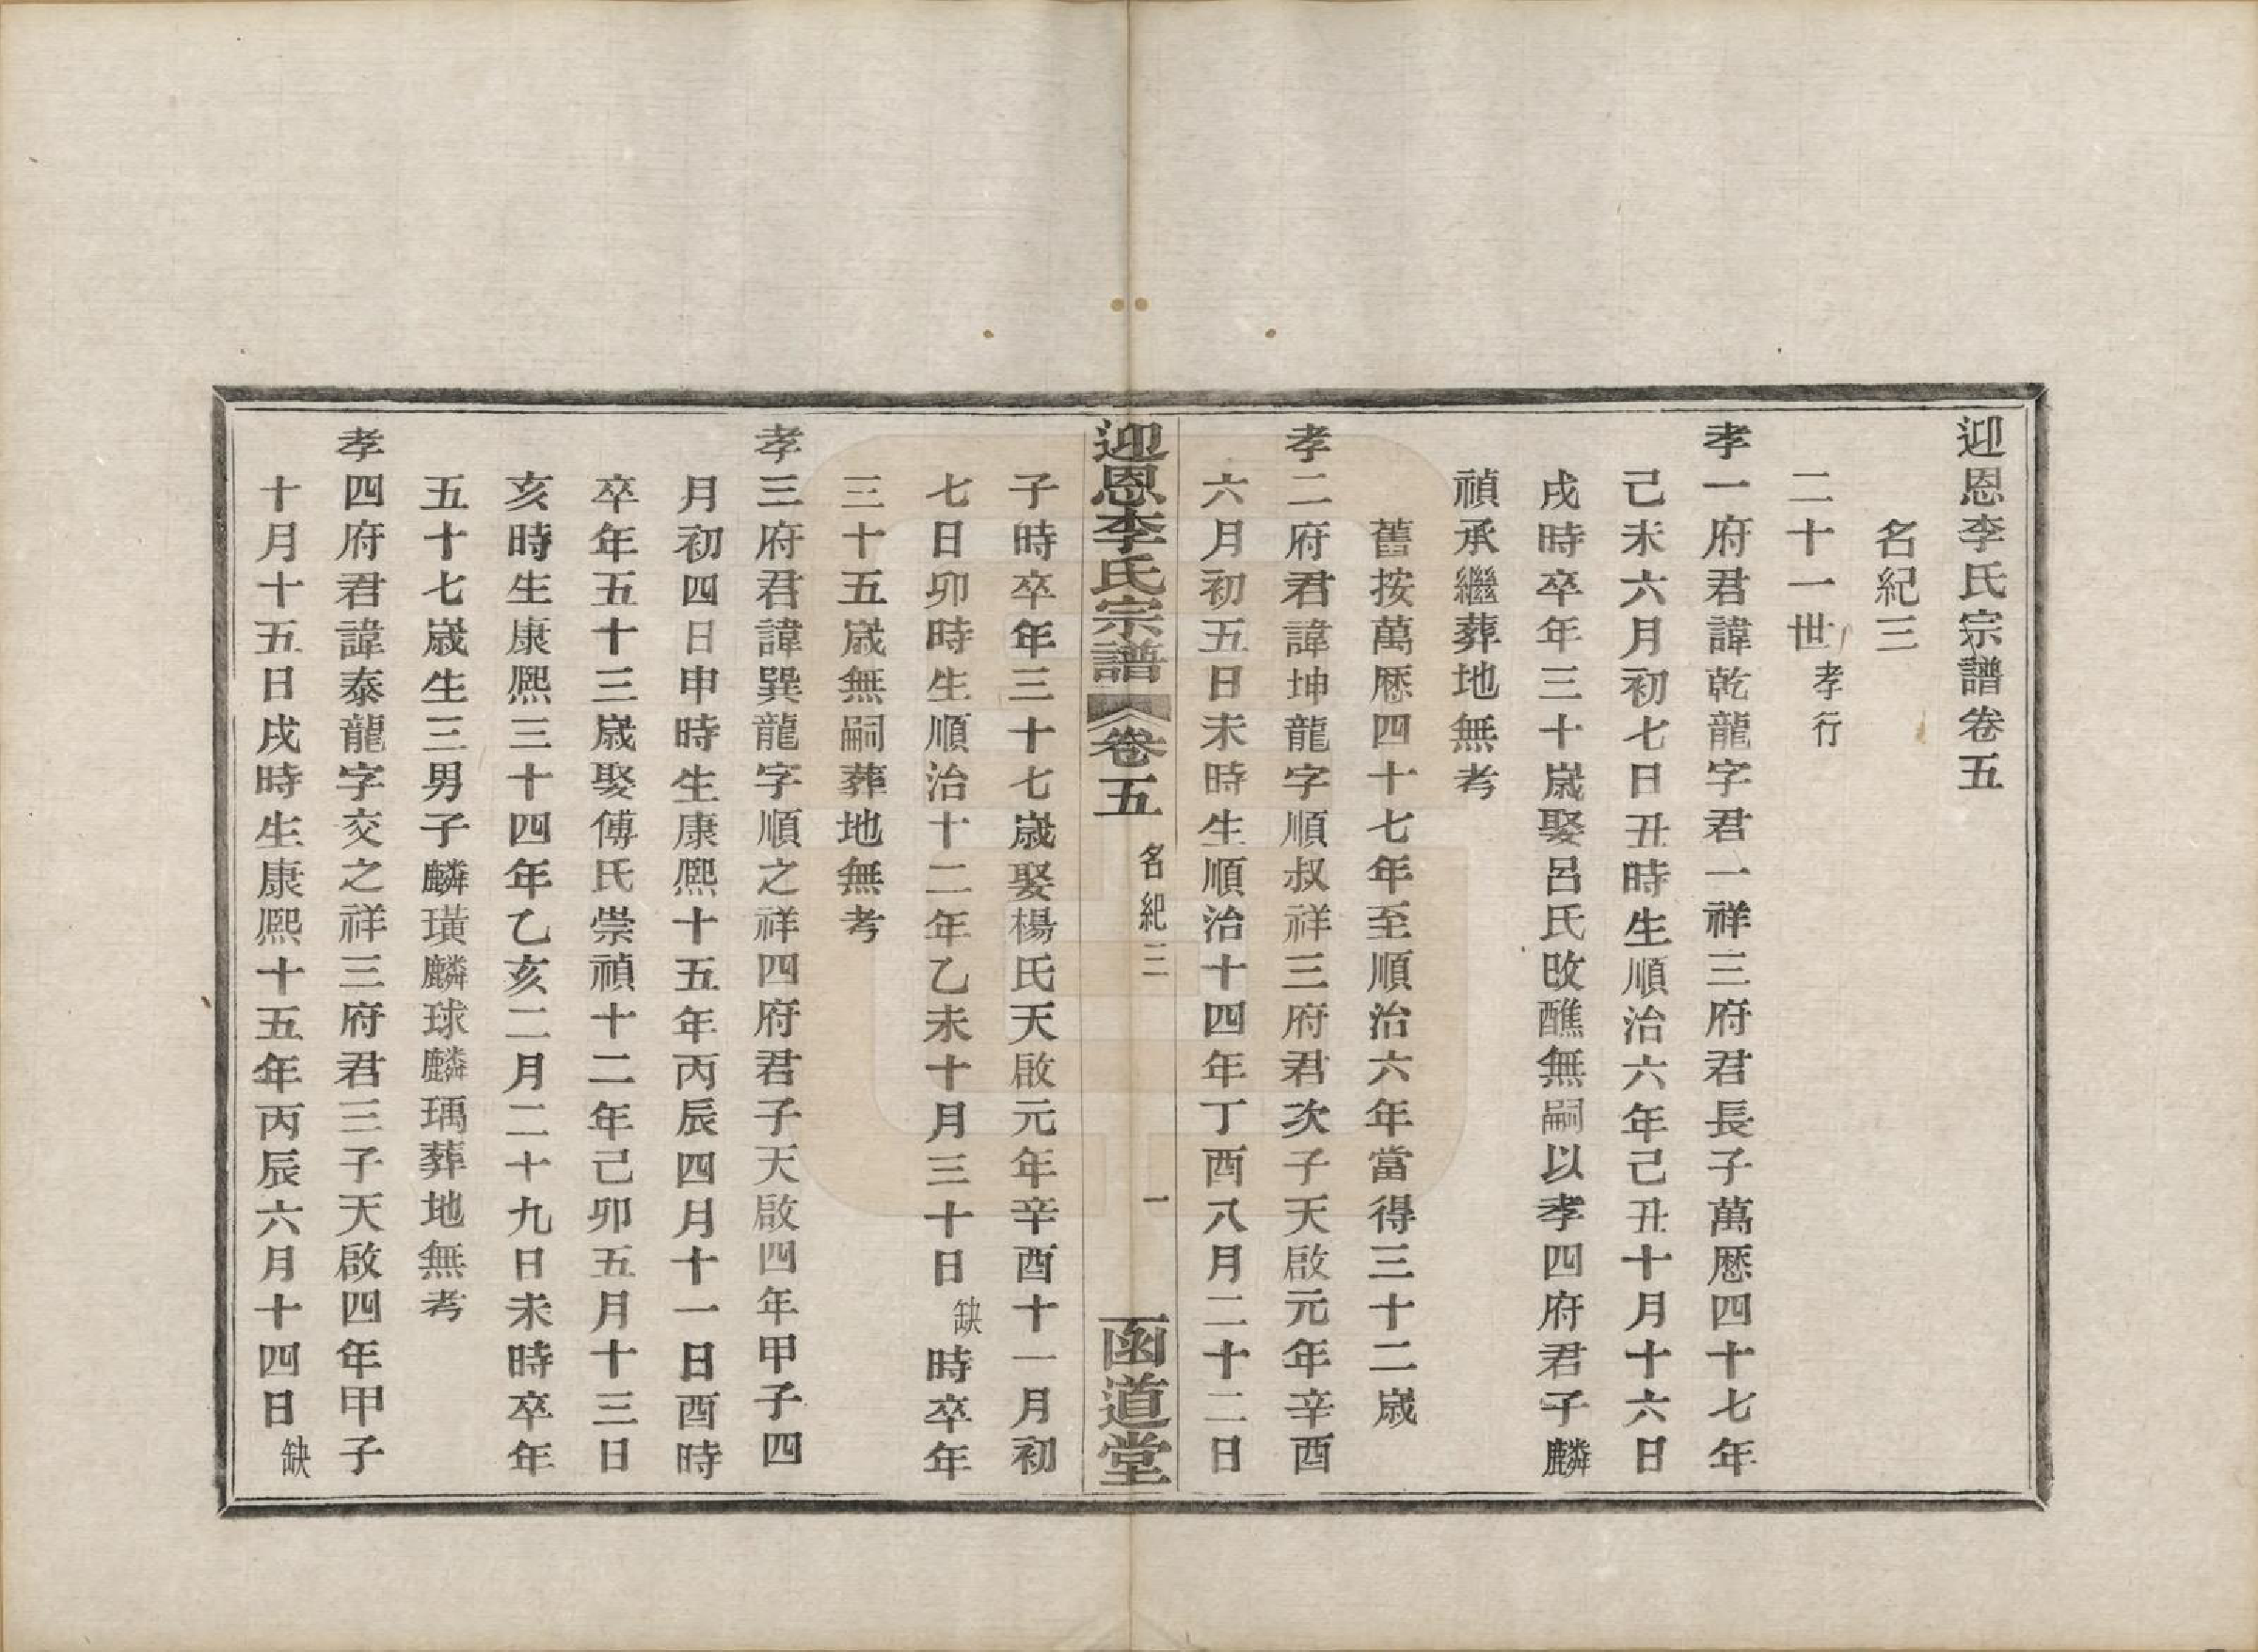 迎恩李氏宗譜卷五
名紀三
二十一世 孝行
孝一府君諱乾龍字君一祥三府君長子萬歷四十七年
己未六月初七日丑時生順治六年己丑十月十六日
戌時卒年三十歲娶呂氏改醮無嗣以孝四府君子麟
禎承繼葬地無考
舊按萬歷四十七年至順治六年當得三十二歲
孝二府君諱坤龍字順叔祥三府君次子天啟元年辛酉
六月初五日未時生順治十四年丁酉八月二十二日
迎恩李氏宗譜 卷五 名紀三 一 函道堂
子時卒年三十七歲娶楊氏天啟元年辛酉十一月初
七日卯時生順治十二年乙未十月三十日缺時卒年
三十五歲無嗣葬地無考
孝三府君諱巽龍字順之祥四府君子天啟四年甲子四
月初四日申時生康熙十五年丙辰四月十一日酉時
卒年五十三歲娶傅氏崇禎十二年己卯五月十三日
亥時生康熙三十四年乙亥二月二十九日未時卒年
五十七歲生三男子麟璜麟球麟瑀葬地無考
孝四府君諱泰龍字交之祥三府君三子天啟四年甲子
十月十五日戌時生康熙十五年丙辰六月十四日缺